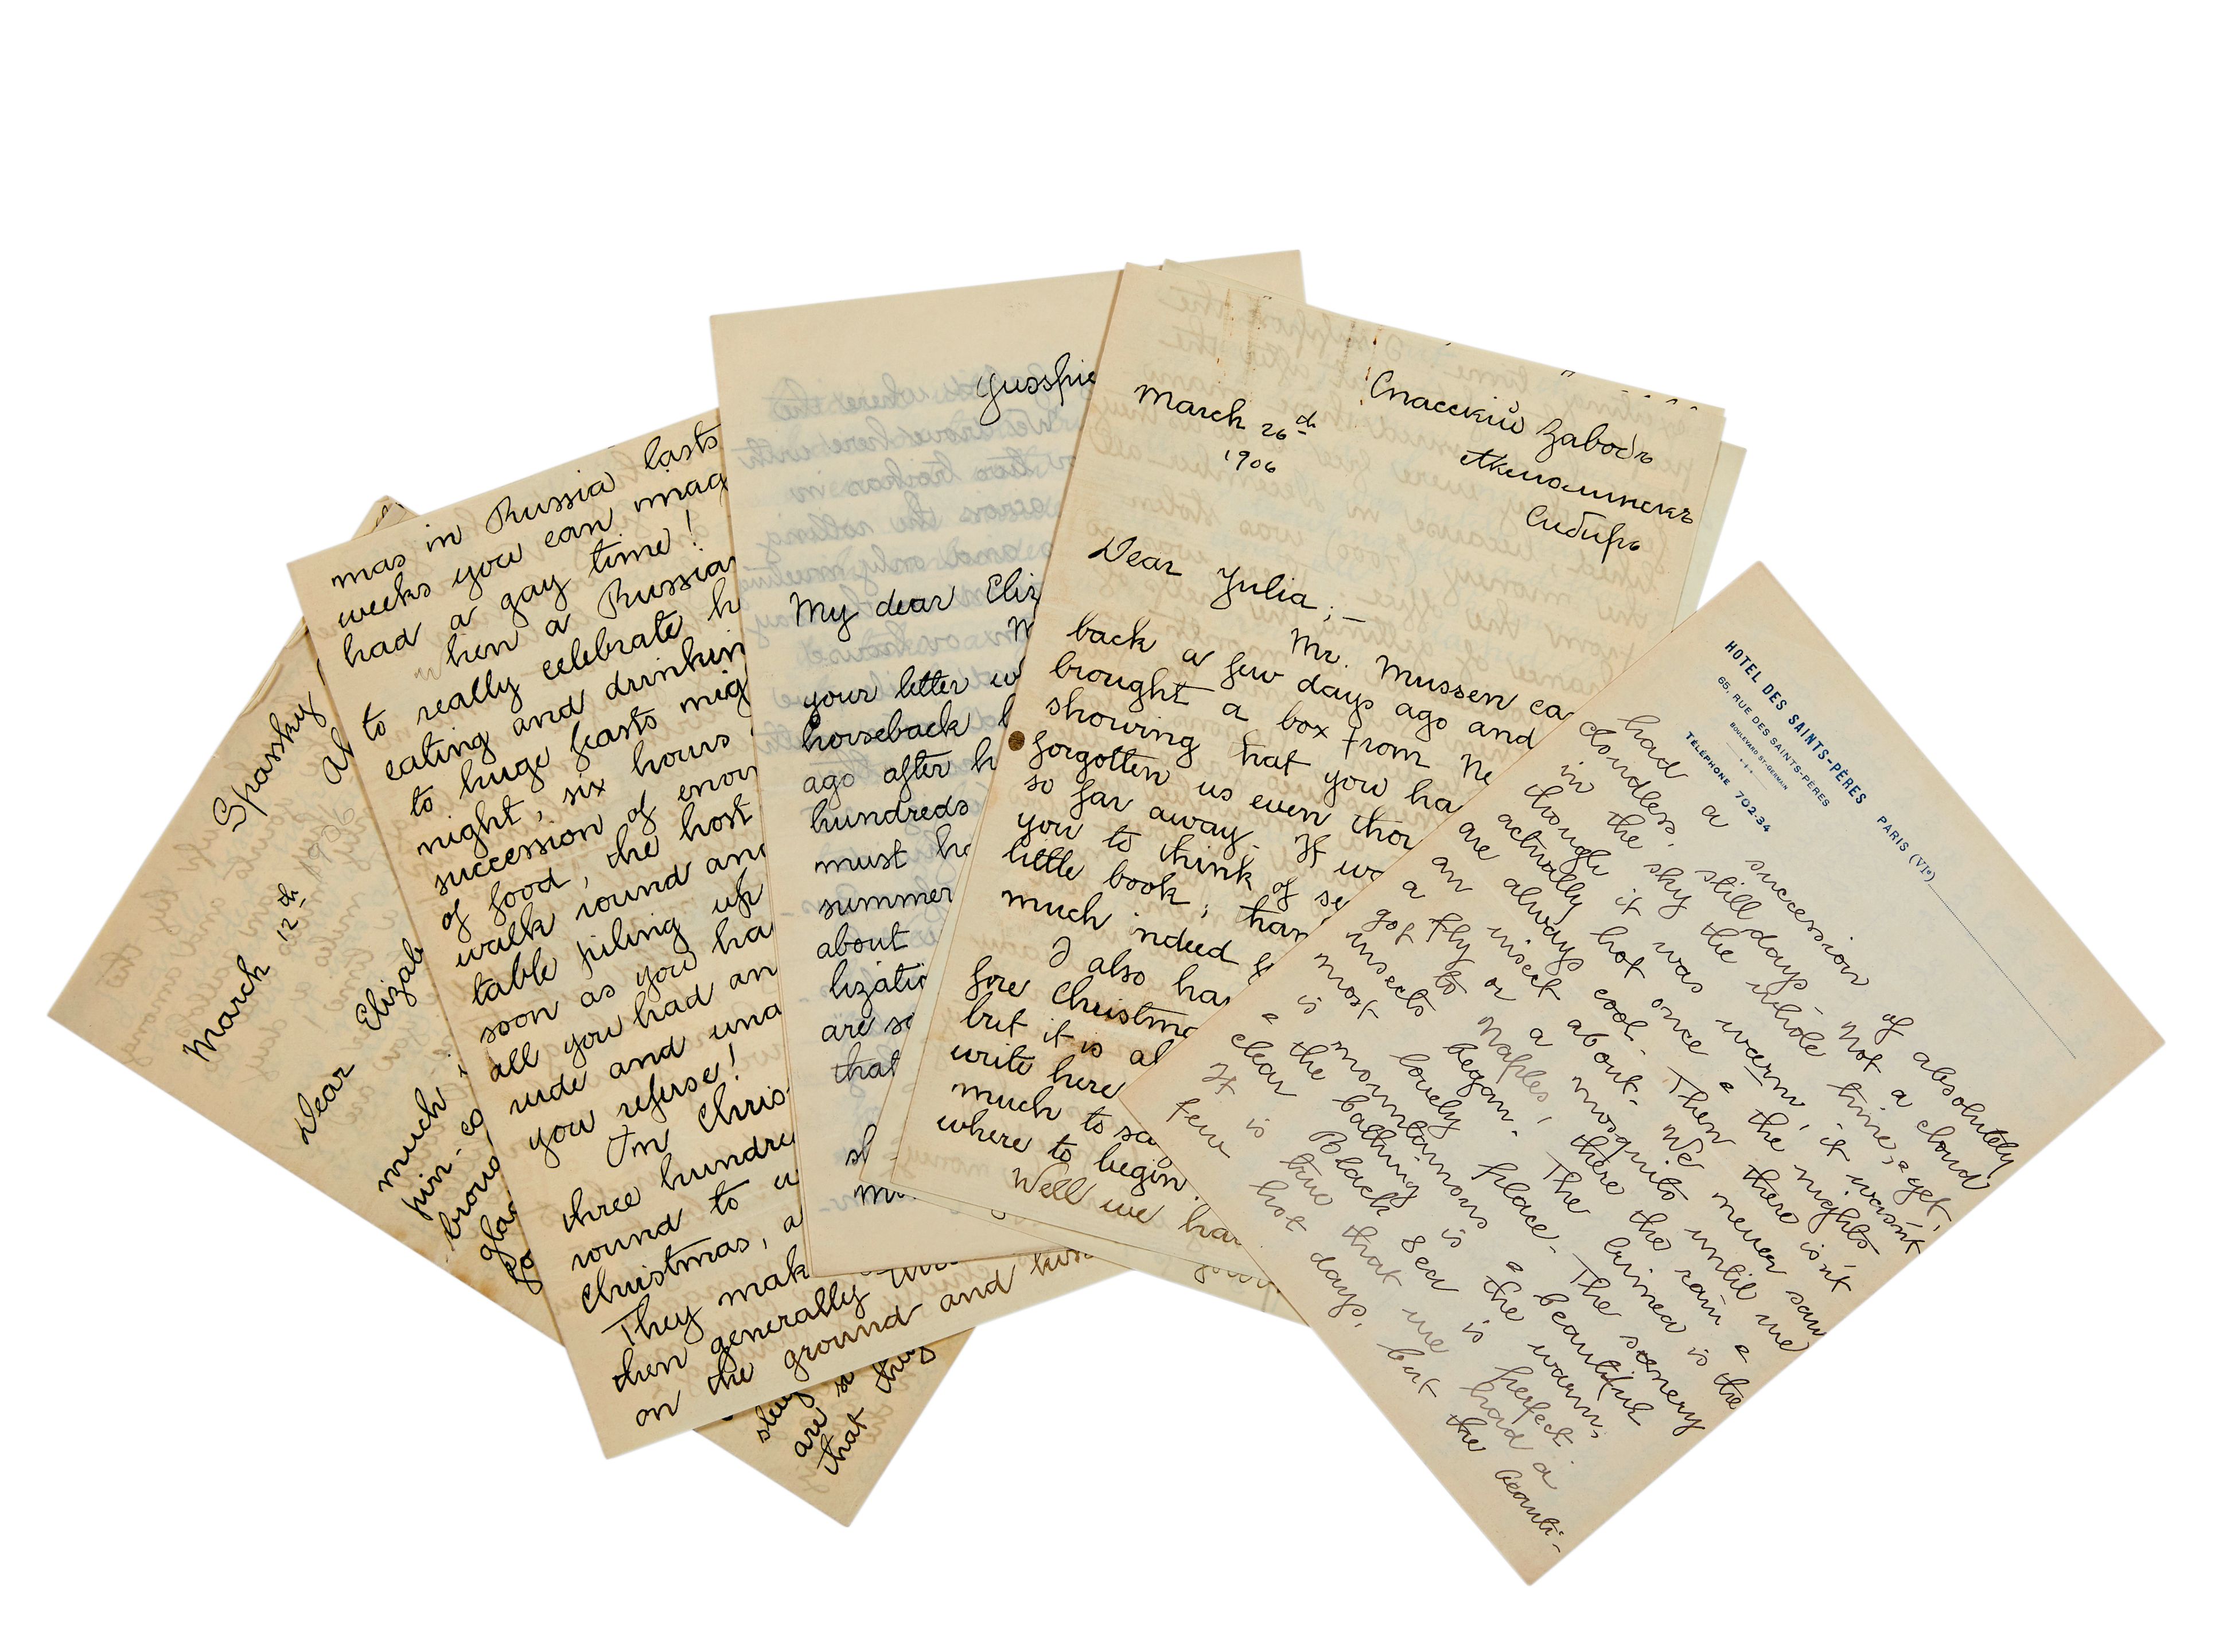 Spassky
March 12th 1906
Dear Elizab
much
pin-
brou
glas
stay
are
that they
mas in Russia lasts
weeks you can imag
had a gay time!
When a Russian
to really celebrate h
eating and drinkin
to huge feasts mig
night, six hours
succession of enor
of food, the host
walk round and
table piling up
soon as you ha
all you had an
rude and una
you refuse!
On Chris-
three hundre
round to u
Christmas, a
They mak
then generally
on the ground and kiss
Yusspie
My dear Eliz
your letter w
horseback
ago after h
hundreds
must ha
summer
about
lizatio
are so
that
sh
Спасскій Заводъ
March 26th
1906
Акмолинскъ
Сибирь
Dear Julia;—
Mr. Mussen ca
back a few days ago and
brought a box from Ne
showing that you ha
forgotten us even thou
so far away. It wa
you to think of se
little book; than
much indeed f
I also ha
fore Christma
but it is al
write here
much to say
where to begin.
Well we hav
HOTEL DES SAINTS-PÈRES
65, RUE DES SAINTS-PÈRES
BOULEVARD ST-GERMAIN
TÉLÉPHONE 702-34
PARISⵏ(VIe)
had a succession of absolutely
cloudless, still days - Not a cloud
in the sky the whole time, & yet,
though it was warm, it wasn't
actually hot once & the nights
are always cool. Then there isn't
an insect about. We never saw
a fly or a mosquito until we
got to Naples, there the rain &
insects began. The Crimea is the
most lovely place. The scenery
is mountainous & beautiful
& the bathing is the warm,
clear Black Sea is perfect.
It is true that we had a
few hot days, but the beauti-